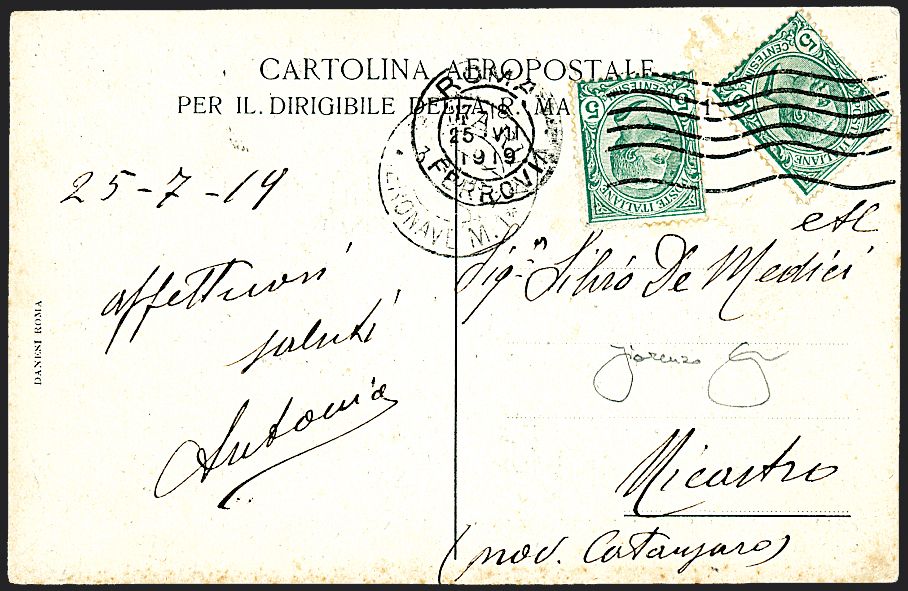 CARTOLINA AEROPOSTALE
PER IL DIRIGIBILE DELLA R. MA
ROMA
17-18
25 VII
1919
FERROVIA
AERONAVE M. 1
CENTESIMI
5
5
POSTE ITALIANE
CENTESIMI
5
5
POSTE ITALIANE
25-7-19
affettuosi
saluti
Antonia
Sig.n Silvio De Medici
Nicastro
(prov. Catanzaro)
DANESI ROMA